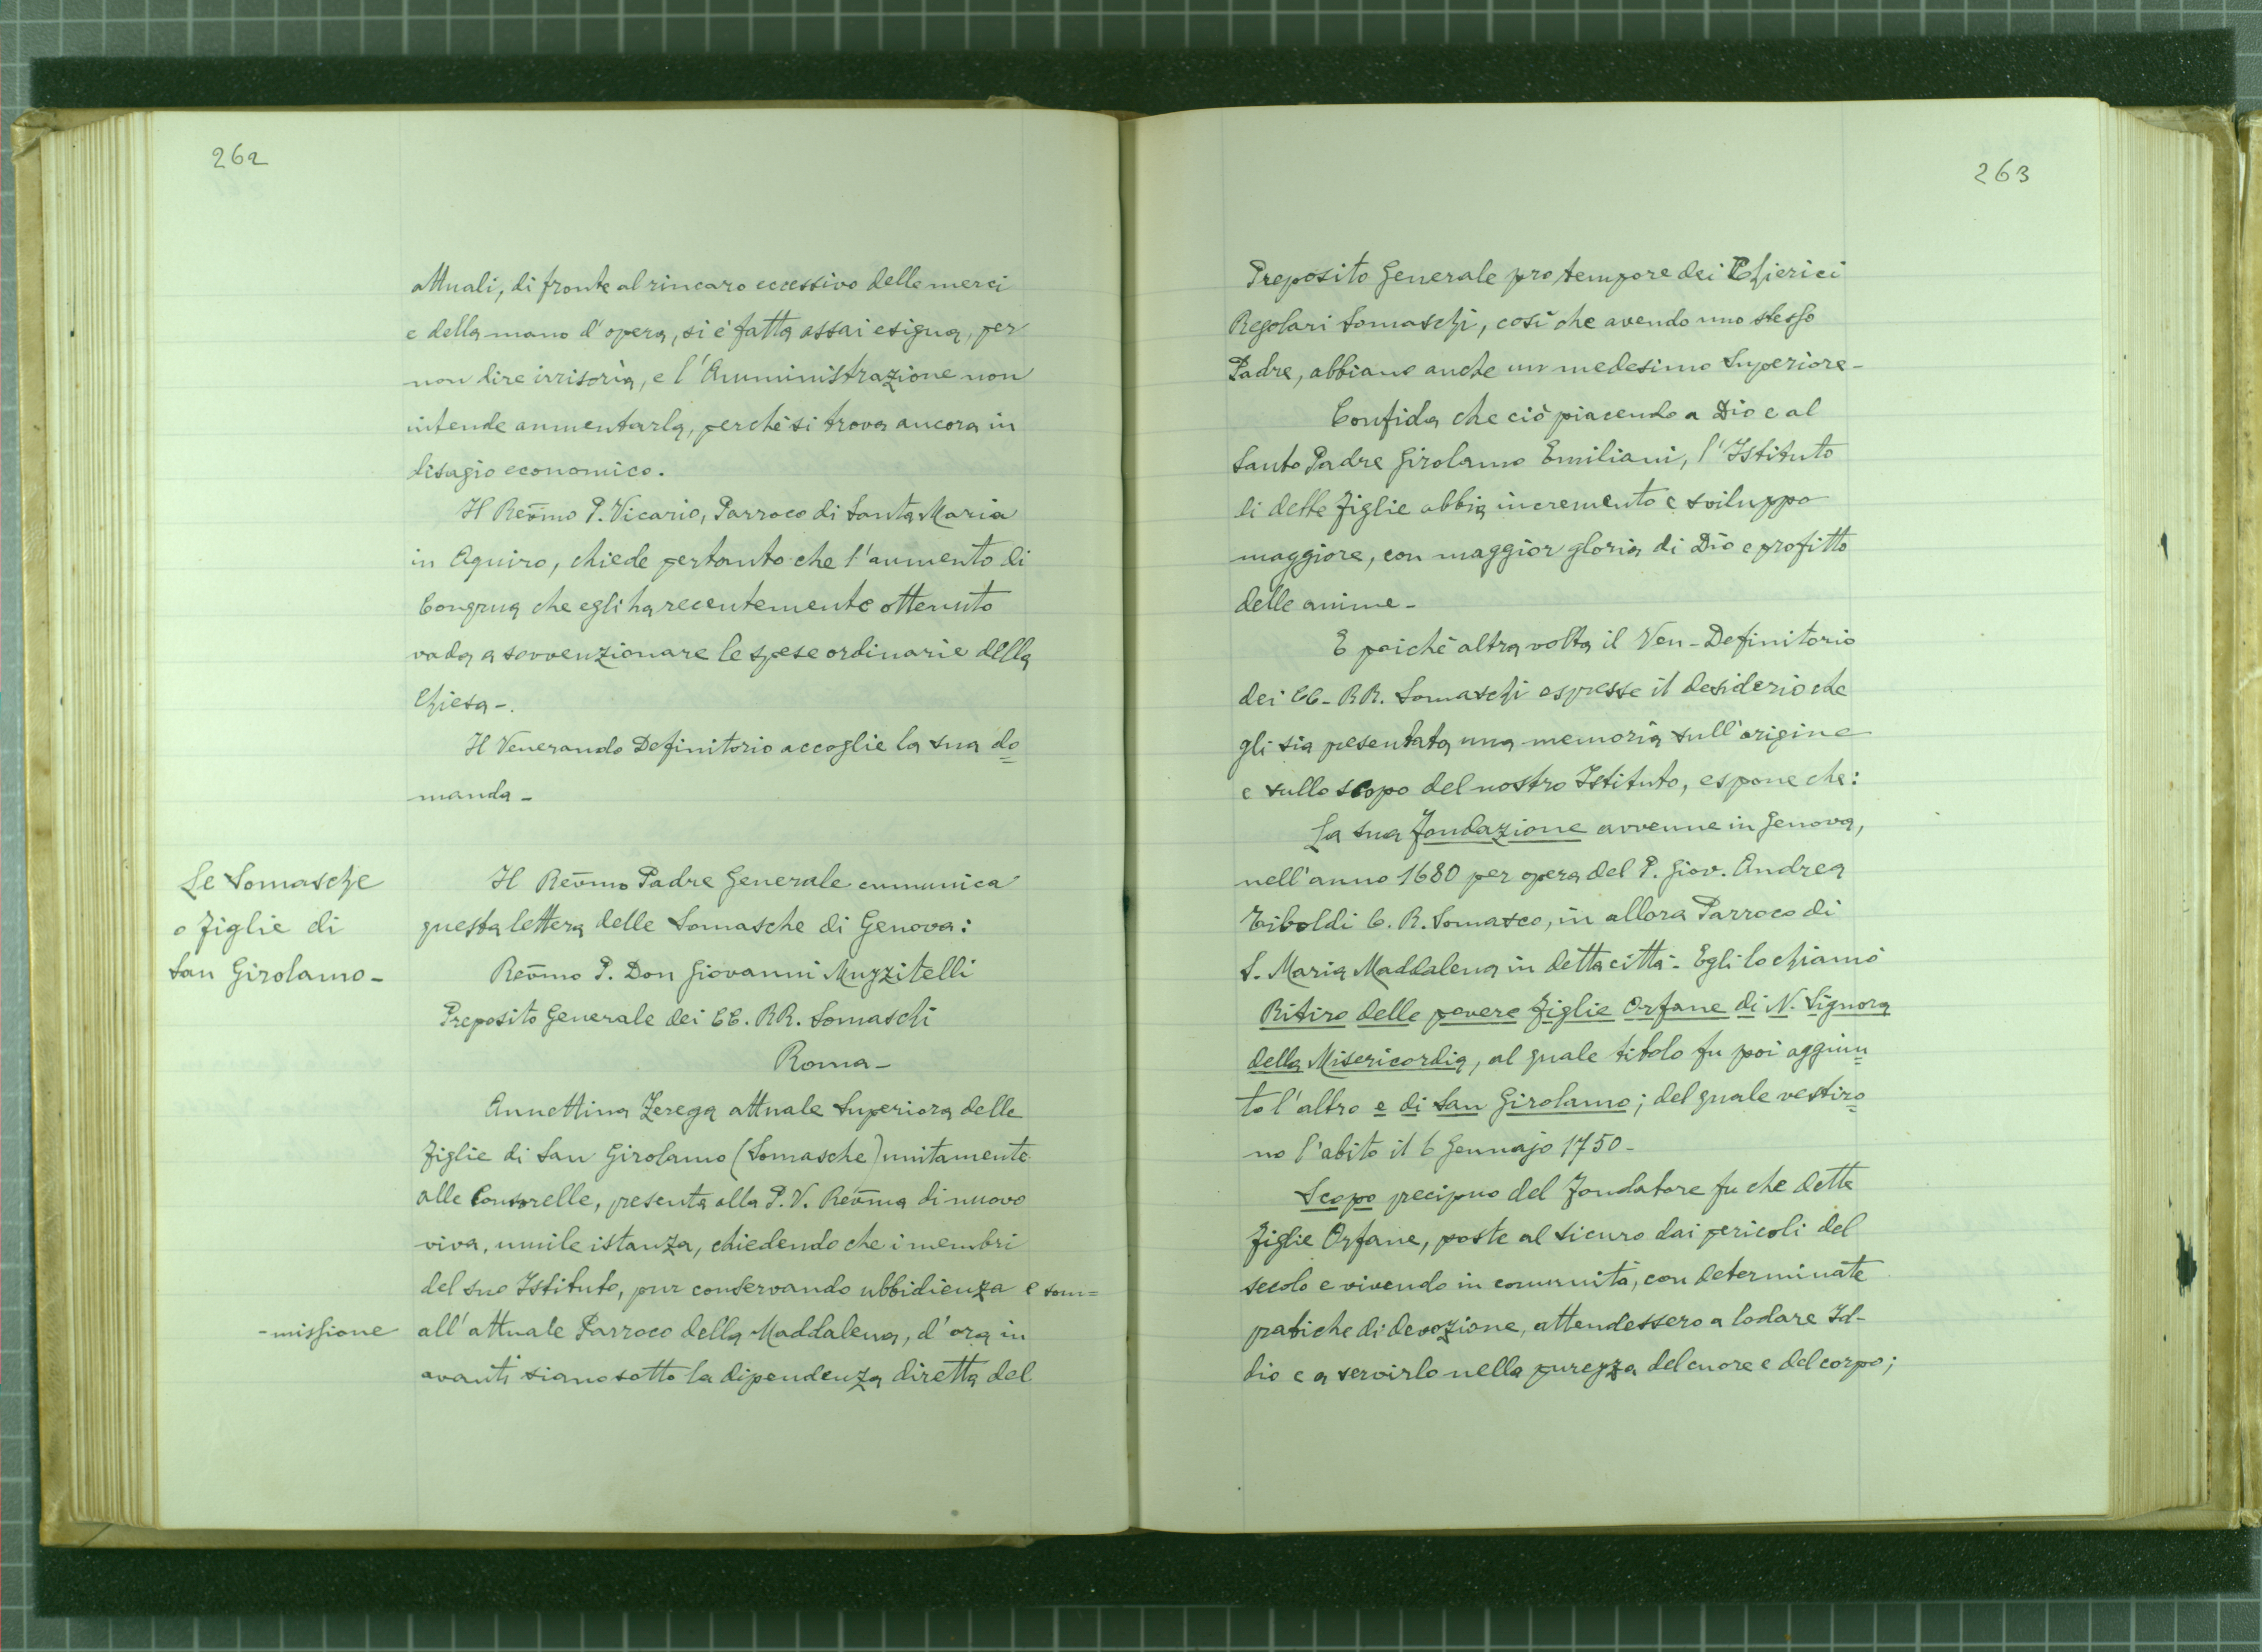 262
attuali, di fronte al rincaro eccessivo delle merci
e della mano d'opera, si è fatta assai esigua, per
non dire irrisoria, e l'Amministrazione non
intende aumentarla, perchè si trova ancora in
disagio economico.
Il Rev̄mo P. Vicario, Parroco di Santa Maria
in Aquiro, chiede pertanto che l'aumento di
Congrua che egli ha recentemente ottenuto
vada a sovvenzionare le spese ordinarie della
Chiesa -.
Il Venerando Definitorio accoglie la sua do=
manda -
Le Somasche
o Figlie di
San Girolamo -
Il Rev̄mo Padre Generale comunica
questa lettera delle Somasche di Genova:
Rev̄mo P. Don Giovanni Muzzitelli
Preposito Generale dei CC. RR. Somaschi
Roma -
Annettina Zerega attuale Superiora delle
Figlie di San Girolamo (Somasche) unitamente
alle Consorelle, presenta alla P. V. Rev̄ma di nuovo
viva, umile istanza, chiedendo che i membri
del suo Istituto, pur conservando ubbidienza e som=
-missione all'attuale Parroco della Maddalena, d'ora in
avanti siano sotto la dipendenza diretta del
263
Preposito Generale pro tempore dei Chierici
Regolari Somaschi, così che avendo uno stesso
Padre, abbiano anche un medesimo Superiore -
Confida che ciò piacendo a Dio e al
Santo Padre Girolamo Emiliani, l'Istituto
di dette Figlie abbia incremento e sviluppo
maggiore, con maggior gloria di Dio e profitto
delle anime -
E poichè altra volta il Ven - Definitorio
dei CC - RR. Somaschi espresse il desiderio che
gli sia presentata una memoria sull'origine
e sullo scopo del nostro Istituto, espone che:
La sua fondazione avvenne in Genova,
nell'anno 1680 per opera del P. Giov. Andrea
Tiboldi C. R. Somasco, in allora Parroco di
S. Maria Maddalena in detta città - Egli lo chiamò
Ritiro delle povere Figlie Orfane di N. Signora
della Misericordia, al quale titolo fu poi aggiun=
to l'altro e di San Girolamo; del quale vestiro=
no l'abito il 6 Gennajo 1750 -
Scopo precipuo del Fondatore fu che dette
Figlie Orfane, poste al sicuro dai pericoli del
secolo e vivendo in comunità, con determinate
pratiche di devozione, attendessero a lodare Id-
dio e a servirlo nella purezza del cuore e del corpo;